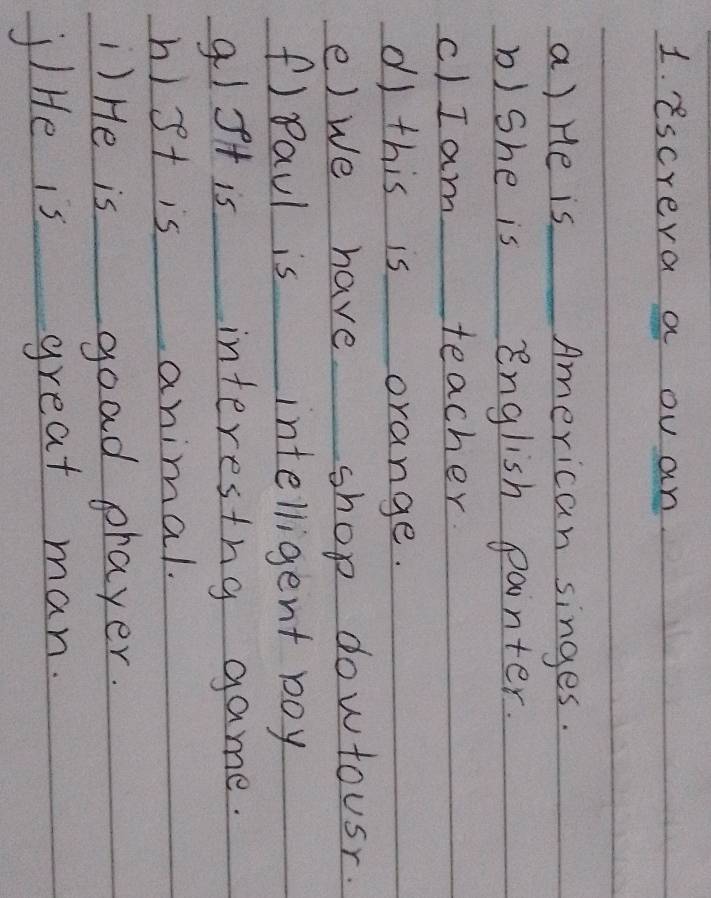 1. Escreva a ou an.
a) He is ___ American singes.
b) She is ___ English painter.
c) I am ___ teacher.
d) this is ___ orange.
e) We have ___ shop dowtousr.
f) Paul is ___ intelligent boy
g) It is ___ interestng game.
h) It is ___ animal.
i) He is ___ goad phayer.
j) He is ___ great man.